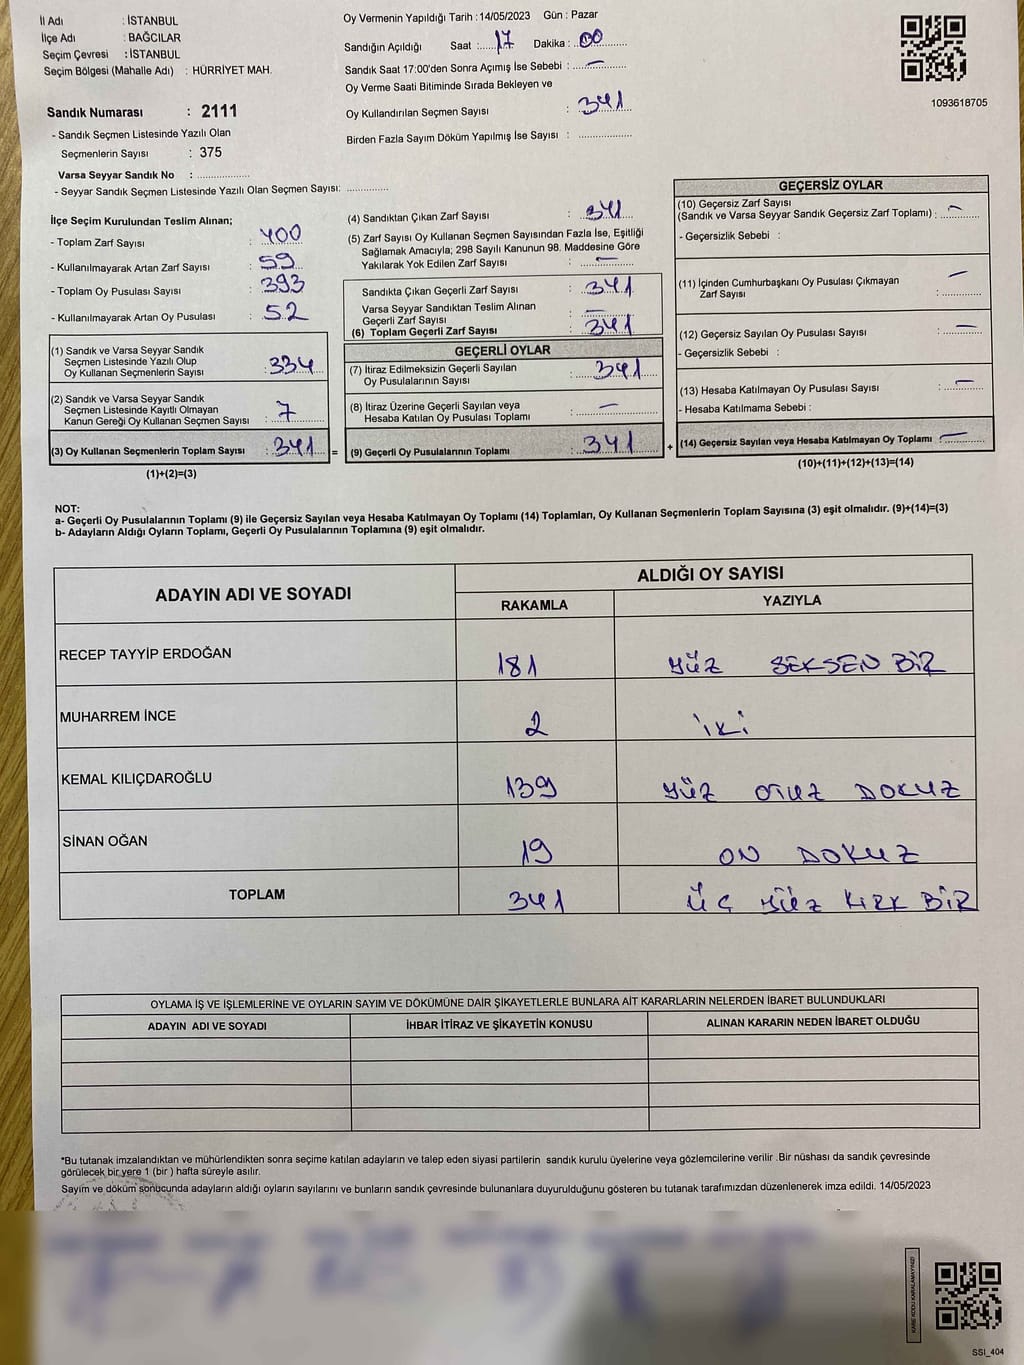 İl Adı : İSTANBUL
İlçe Adı : BAĞCILAR
Seçim Çevresi : İSTANBUL
Seçim Bölgesi (Mahalle Adı) : HÜRRİYET MAH.
Sandık Numarası : 2111
- Sandık Seçmen Listesinde Yazılı Olan
Seçmenlerin Sayısı : 375
Varsa Seyyar Sandık No : ................
- Seyyar Sandık Seçmen Listesinde Yazılı Olan Seçmen Sayısı: ............
Oy Vermenin Yapıldığı Tarih : 14/05/2023 Gün : Pazar
Sandığın Açıldığı Saat : 17 Dakika : 00
Sandık Saat 17:00'den Sonra Açımış İse Sebebi : —
Oy Verme Saati Bitiminde Sırada Bekleyen ve
Oy Kullandırılan Seçmen Sayısı : 341
Birden Fazla Sayım Döküm Yapılmış İse Sayısı : ................
1093618705
İlçe Seçim Kurulundan Teslim Alınan;
- Toplam Zarf Sayısı : 400
- Kullanılmayarak Artan Zarf Sayısı : 59
- Toplam Oy Pusulası Sayısı : 393
- Kullanılmayarak Artan Oy Pusulası : 52
(1) Sandık ve Varsa Seyyar Sandık
Seçmen Listesinde Yazılı Olup
Oy Kullanan Seçmenlerin Sayısı : 334
(2) Sandık ve Varsa Seyyar Sandık
Seçmen Listesinde Kayıtlı Olmayan
Kanun Gereği Oy Kullanan Seçmen Sayısı : 7
(3) Oy Kullanan Seçmenlerin Toplam Sayısı : 341 =
(1)+(2)=(3)
(4) Sandıktan Çıkan Zarf Sayısı : 341
(5) Zarf Sayısı Oy Kullanan Seçmen Sayısından Fazla İse, Eşitliği
Sağlamak Amacıyla; 298 Sayılı Kanunun 98. Maddesine Göre
Yakılarak Yok Edilen Zarf Sayısı : —
Sandıkta Çıkan Geçerli Zarf Sayısı : 341
Varsa Seyyar Sandıktan Teslim Alınan
Geçerli Zarf Sayısı : —
(6) Toplam Geçerli Zarf Sayısı : 341
GEÇERLİ OYLAR
(7) İtiraz Edilmeksizin Geçerli Sayılan
Oy Pusulalarının Sayısı : 341
(8) İtiraz Üzerine Geçerli Sayılan veya
Hesaba Katılan Oy Pusulası Toplamı : —
(9) Geçerli Oy Pusulalarının Toplamı : 341 +
GEÇERSİZ OYLAR
(10) Geçersiz Zarf Sayısı
(Sandık ve Varsa Seyyar Sandık Geçersiz Zarf Toplamı) : —
- Geçersizlik Sebebi :
(11) İçinden Cumhurbaşkanı Oy Pusulası Çıkmayan
Zarf Sayısı : —
(12) Geçersiz Sayılan Oy Pusulası Sayısı : —
- Geçersizlik Sebebi :
(13) Hesaba Katılmayan Oy Pusulası Sayısı : —
- Hesaba Katılmama Sebebi :
(14) Geçersiz Sayılan veya Hesaba Katılmayan Oy Toplamı : —
(10)+(11)+(12)+(13)=(14)
NOT:
a- Geçerli Oy Pusulalarının Toplamı (9) ile Geçersiz Sayılan veya Hesaba Katılmayan Oy Toplamı (14) Toplamları, Oy Kullanan Seçmenlerin Toplam Sayısına (3) eşit olmalıdır. (9)+(14)=(3)
b- Adayların Aldığı Oyların Toplamı, Geçerli Oy Pusulalarının Toplamına (9) eşit olmalıdır.
ADAYIN ADI VE SOYADI ALDIĞI OY SAYISI
RAKAMLA YAZIYLA
RECEP TAYYİP ERDOĞAN 181 YÜZ SEKSEN BİR
MUHARREM İNCE 2 İKİ
KEMAL KILIÇDAROĞLU 139 YÜZ OTUZ DOKUZ
SİNAN OĞAN 19 ON DOKUZ
TOPLAM 341 ÜÇ YÜZ KIRK BİR
OYLAMA İŞ VE İŞLEMLERİNE VE OYLARIN SAYIM VE DÖKÜMÜNE DAİR ŞİKAYETLERLE BUNLARA AİT KARARLARIN NELERDEN İBARET BULUNDUKLARI
ADAYIN ADI VE SOYADI İHBAR İTİRAZ VE ŞİKAYETİN KONUSU ALINAN KARARIN NEDEN İBARET OLDUĞU
*Bu tutanak imzalandıktan ve mühürlendikten sonra seçime katılan adayların ve talep eden siyasi partilerin sandık kurulu üyelerine veya gözlemcilerine verilir .Bir nüshası da sandık çevresinde
görülecek bir yere 1 (bir ) hafta süreyle asılır.
Sayım ve döküm sonucunda adayların aldığı oyların sayılarını ve bunların sandık çevresinde bulunanlara duyurulduğunu gösteren bu tutanak tarafımızdan düzenlenerek imza edildi. 14/05/2023
KARE KODU KARALAMAYINIZ!
SSI_404